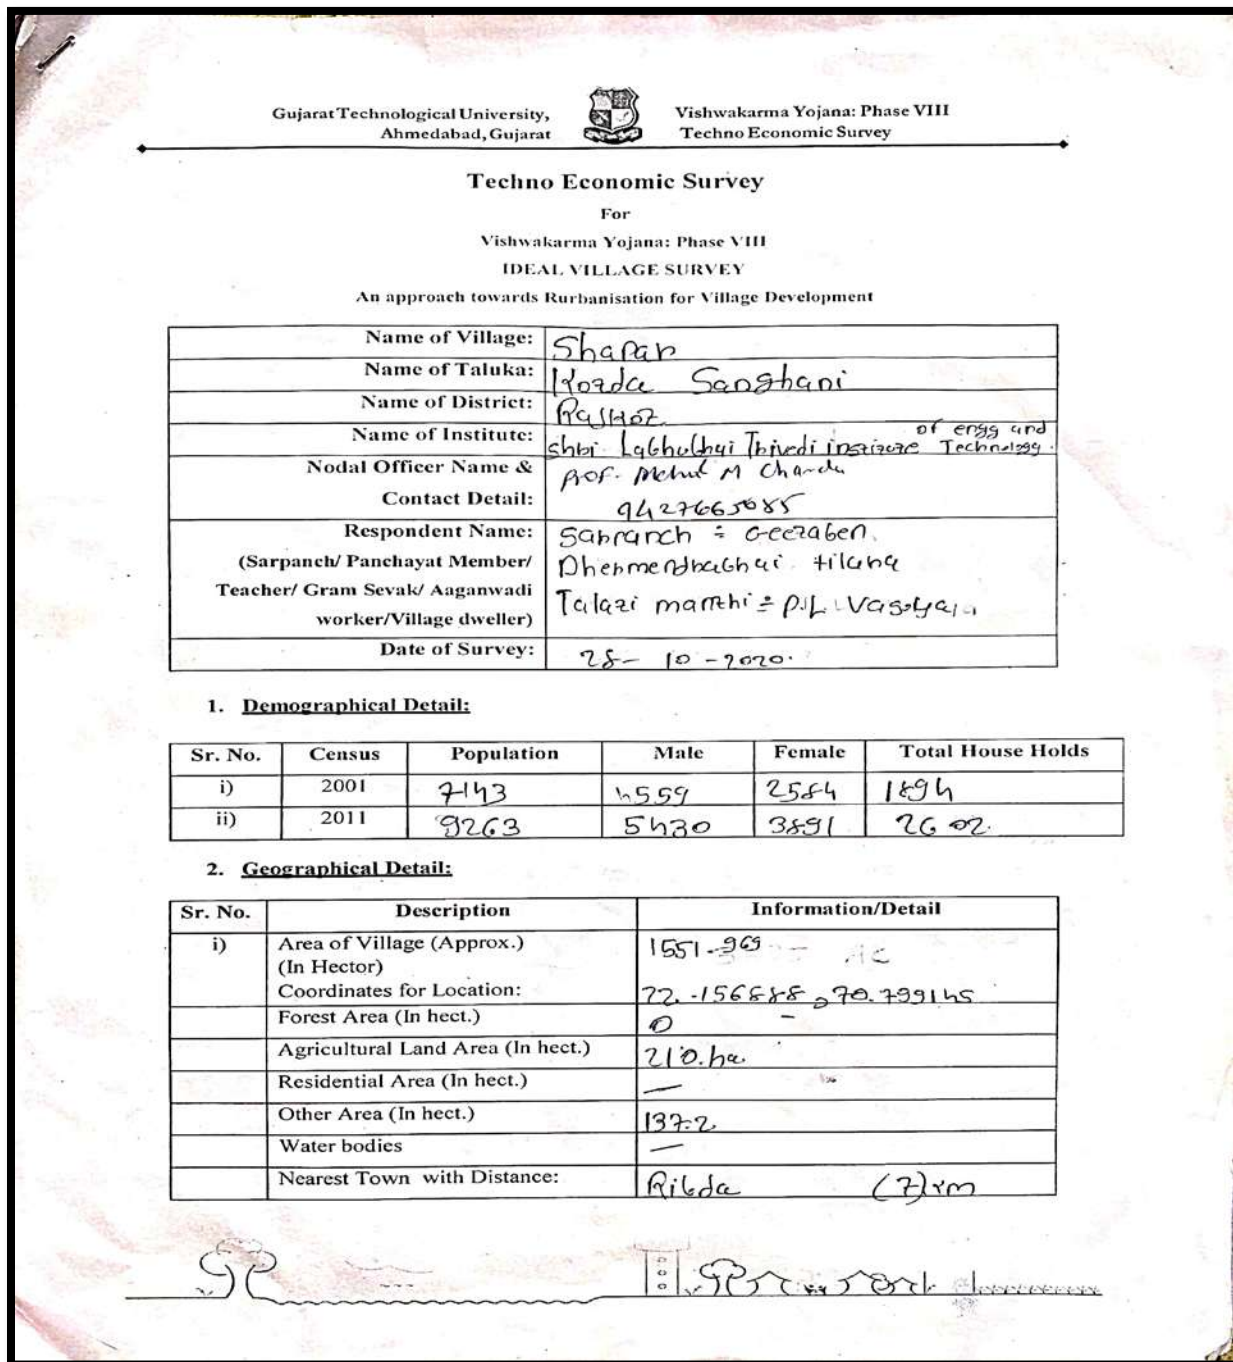 Gujarat Technological University, Vishwakarma Yojana: Phase VIII
Ahmedabad, Gujarat Techno Economic Survey
Techno Economic Survey
For
Vishwakarma Yojana: Phase VIII
IDEAL VILLAGE SURVEY
An approach towards Rurbanisation for Village Development
Name of Village: Shapar
Name of Taluka: Kotda Sanghani
Name of District: Rajkot
Name of Institute: shri Labhubhai Trivedi institute of engg and Technology.
Nodal Officer Name & Prof. Mehul M Chanda
Contact Detail: 9427665085
Respondent Name: Sarpanch :
(Sarpanch/ Panchayat Member/
Teacher/ Gram Sevak/ Aaganwadi Talati mantri :
worker/Village dweller)
Date of Survey: 28- 10 -2020.
1. Demographical Detail:
Sr. No. Census Population Male Female Total House Holds
i) 2001 7143 4559 2584 1894
ii) 2011 9263 3891 2602.
2. Geographical Detail:
Sr. No. Description Information/Detail
i) Area of Village (Approx.) 1551.969
(In Hector)
Coordinates for Location: 22.156888, 70.799145
Forest Area (In hect.) 0
Agricultural Land Area (In hect.) 210.ha
Residential Area (In hect.) —
Other Area (In hect.) 137.2
Water bodies —
Nearest Town with Distance: Ribda (7) km